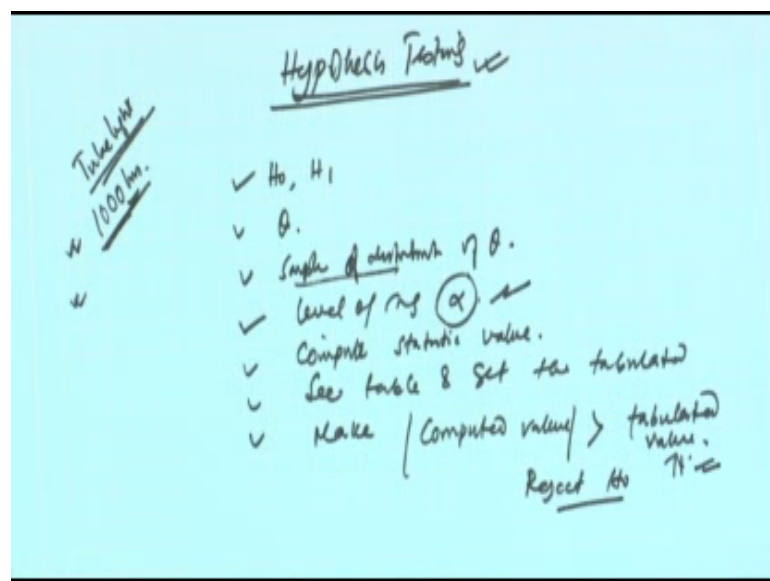 Hypothesis Testing
Tubelight
1000 hrs.
H0, H1
θ.
Sample distribution of θ.
level of sig α.
Compute statistic value.
See table & get the tabulated
Make |Computed value| > tabulated
value.
Reject H0